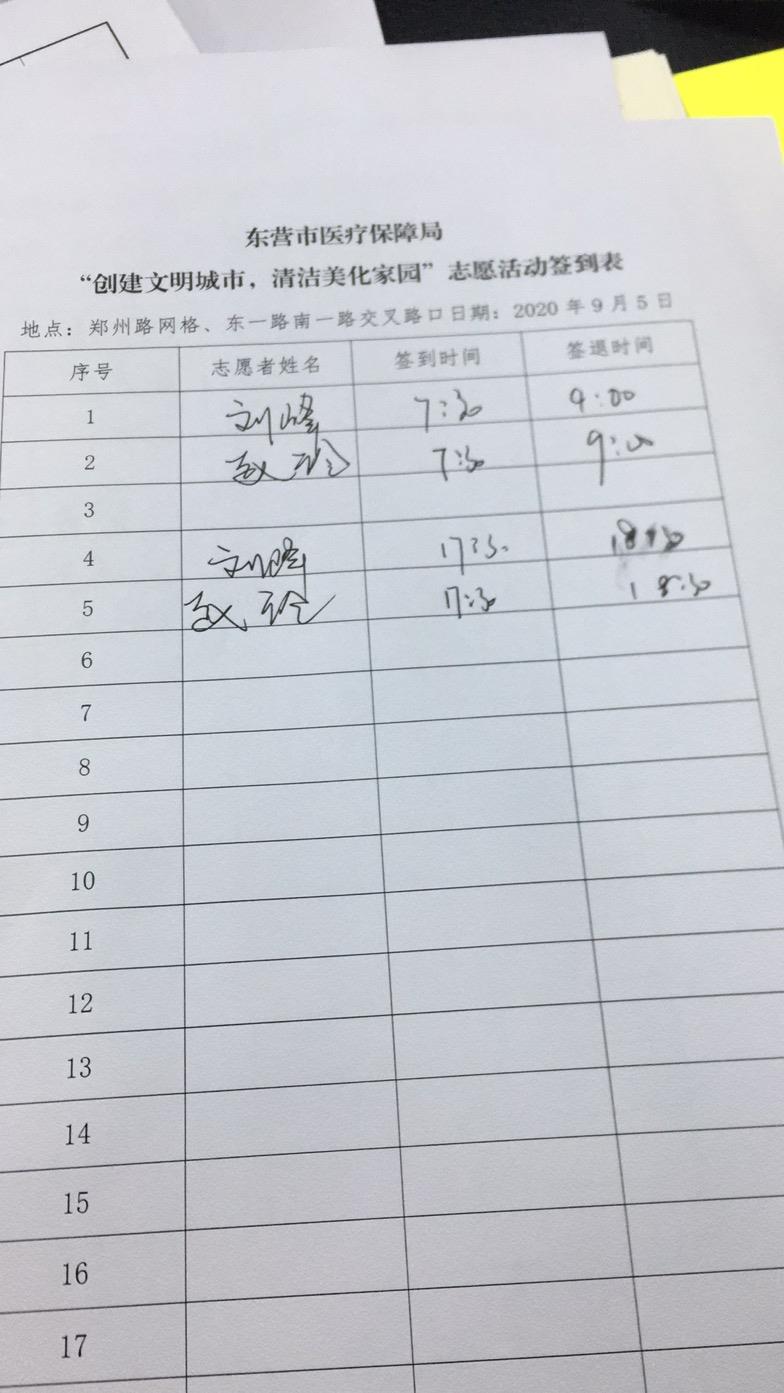 东营市医疗保障局
“创建文明城市，清洁美化家园”志愿活动签到表
地点：郑州路网格、东一路南一路交叉路口日期：2020年9月5日
序号 志愿者姓名 签到时间 签退时间
1 刘峰 7:30 9:00
2 赵玲 7:30 9:00
3
4 刘峰 17:30 18:30
5 赵玲 17:30 18:30
6
7
8
9
10
11
12
13
14
15
16
17